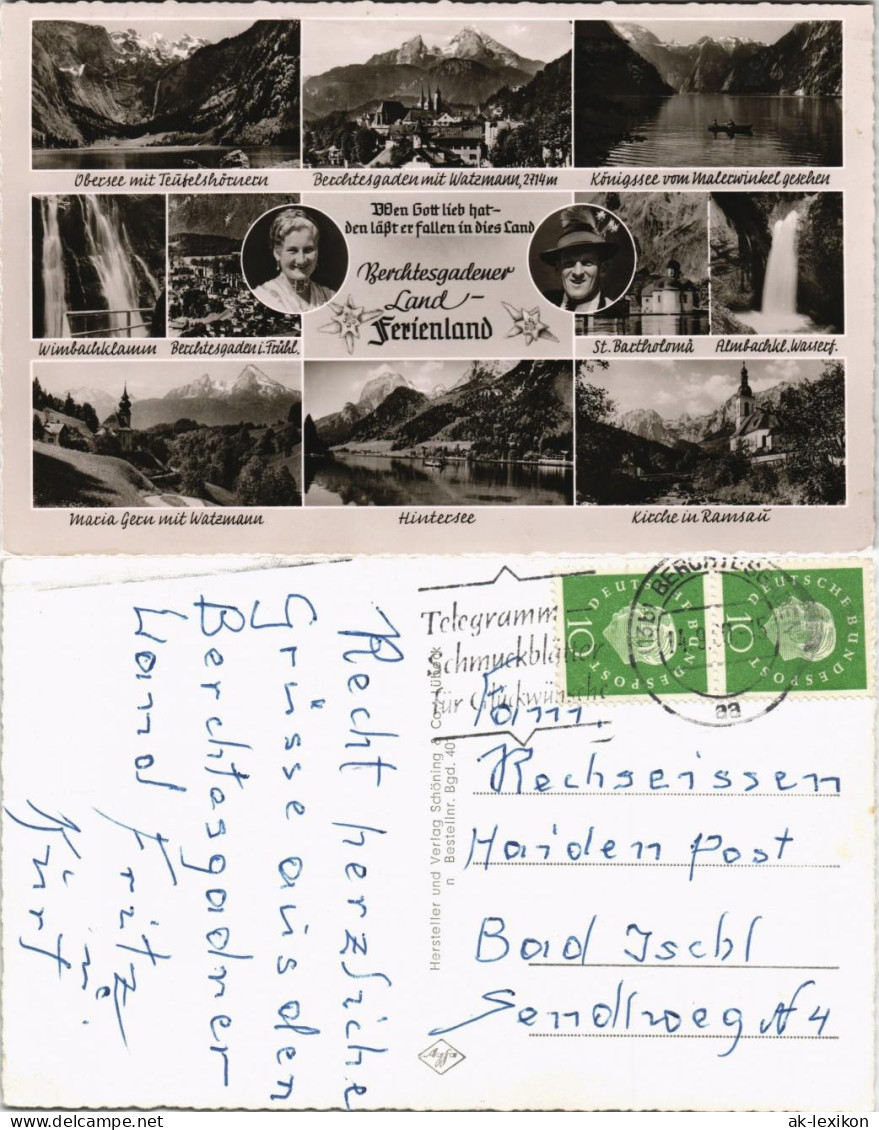 Obersee mit Teufelshörnern
Berchtesgaden mit Watzmann, 2714 m
Königssee vom Malerwinkel gesehen
Wen Gott lieb hat-
den läßt er fallen in dies Land
Berchtesgadener
Land-
Ferienland
Wimbachklamm
Berchtesgaden i. Frühl.
St. Bartholomä
Almbachkl. Wasserf.
Maria Gern mit Watzmann
Hintersee
Kirche in Ramsau
Recht herzliche
Grüsse aus den
Berchtesgadner
Land Fritz
Telegramm
Schmuckblätter
für Glückwünsche
(13b) BERCHTESG
14.9.60
aa
DEUTSCHE BUNDESPOST
10
DEUTSCHE BUNDESPOST
10
Hersteller und Verlag Schöning & Co., Lübeck
Bestellnr. Bgd. 40
Agfa
Fam.
Rechseissen
Haiden Post
Bad Ischl
Sendlweg № 4
ak-lexikon